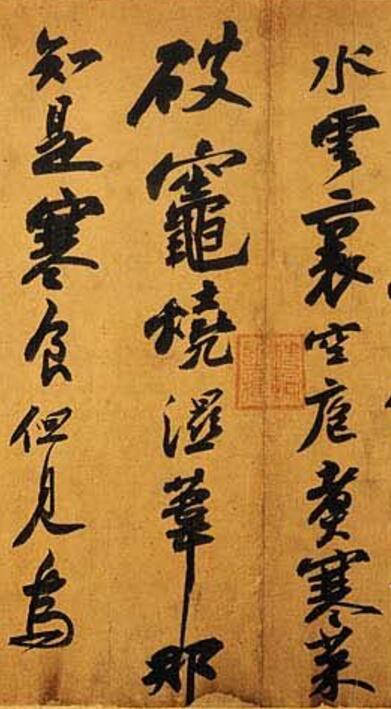 水雲裏空庖煑寒菜
破竈燒濕葦那
知是寒食但見烏